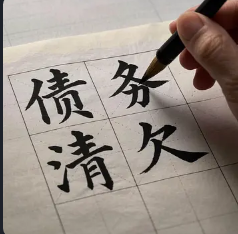 债务
清欠